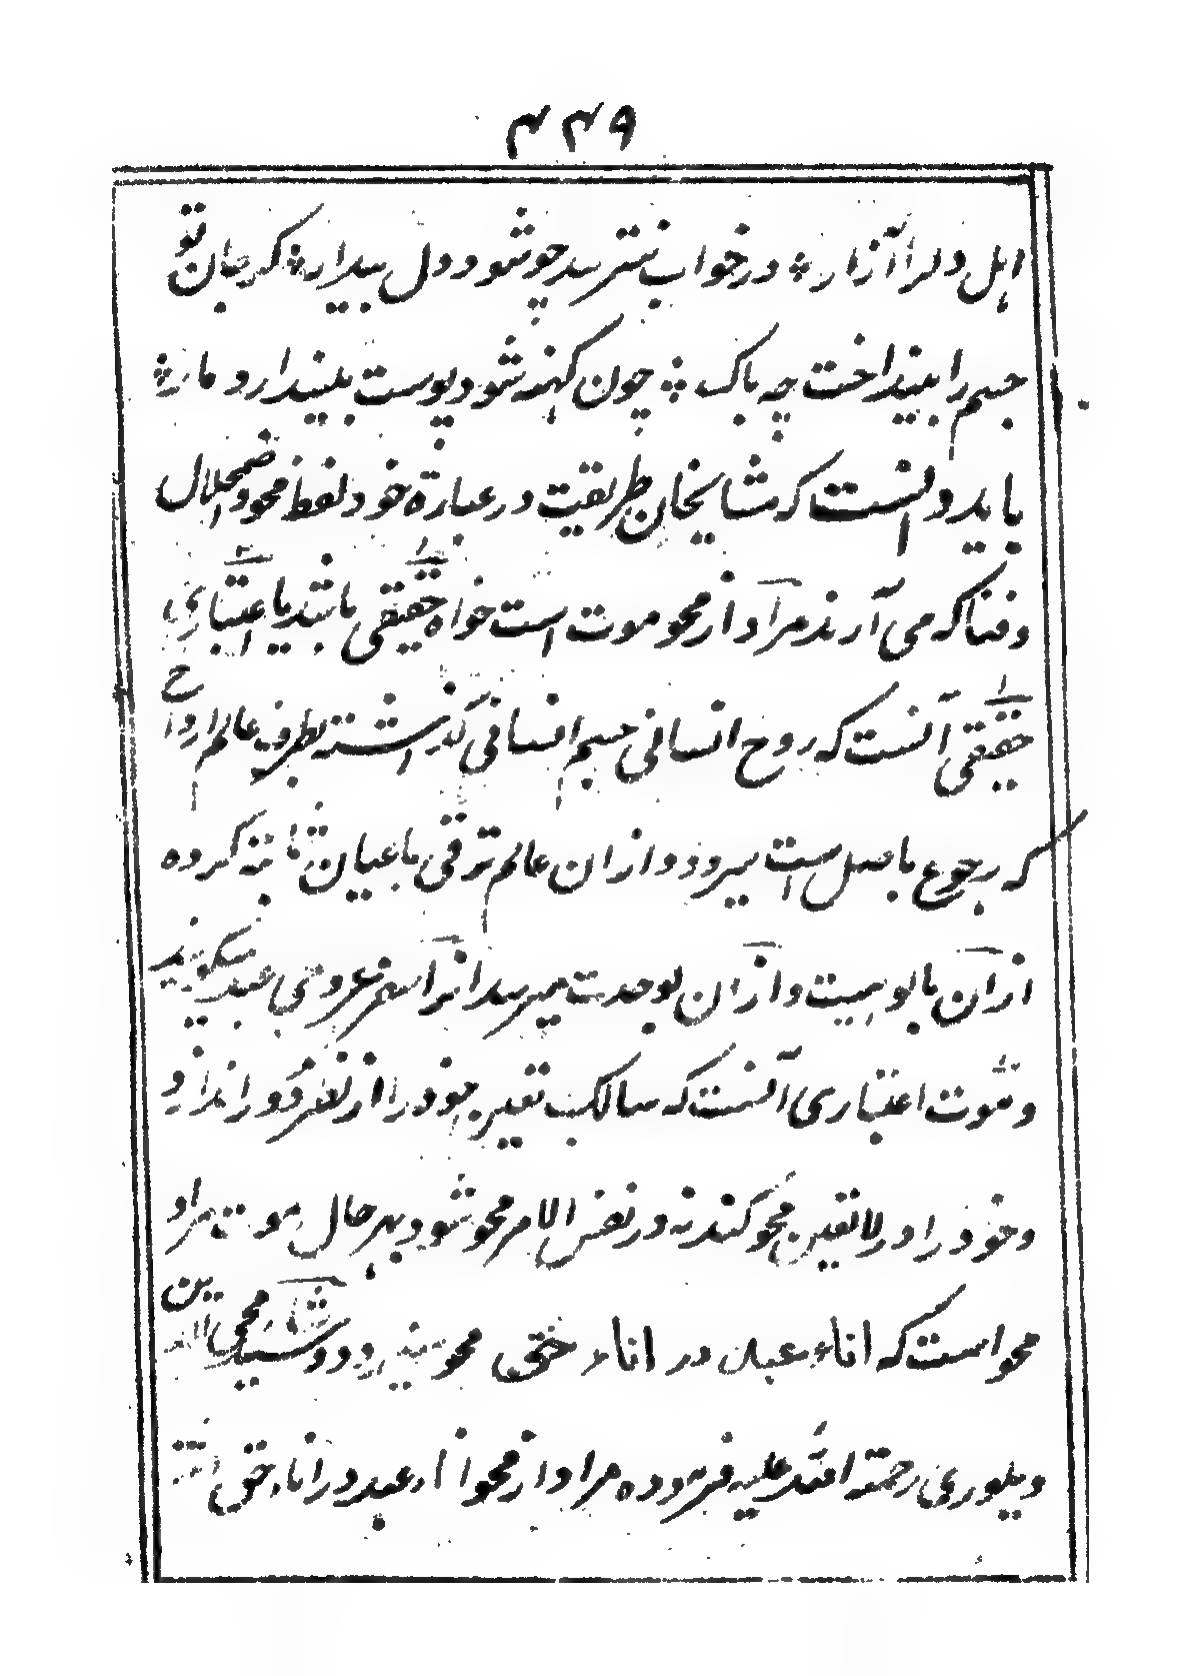 ۴۴۹
اہل دلرا آزار ٭ در خواب نترسد چو شود دل بیدار ٭ گر جان تو
جسم را بینداخت چه باک ٭ چون کهنه شود پوست بیندازد مار ٭
باید دانست که مشایخان طریقت در عبارة خود لفظ محو و اضمحلال
و فنا که می آرند مراد از محو موت است خواه حقیقی باشد یا اعتباری
حقیقی آنست که روح انسانی جسم انسانی گذاشته بطرف عالم ارواح
که رجوع باصل است میرود و از ان عالم ترقی باعیان ثابته کرده
از ان بالوهیت و از ان بوحدت میرسد انرا سفر عروجی عبد میگویند
و موت اعتباری آنست که سالک تعین خود را از نظر دور اندازد
و خود را در لاتعین محو کند نه در نفس الامر محو شود بهر حال موت مراد
محو است که اناء عبد در اناء حق محو میشود و سید محی الدین
ویلوری رحمة الله علیه فرموده مراد از محو اناء عبد در اناء حق